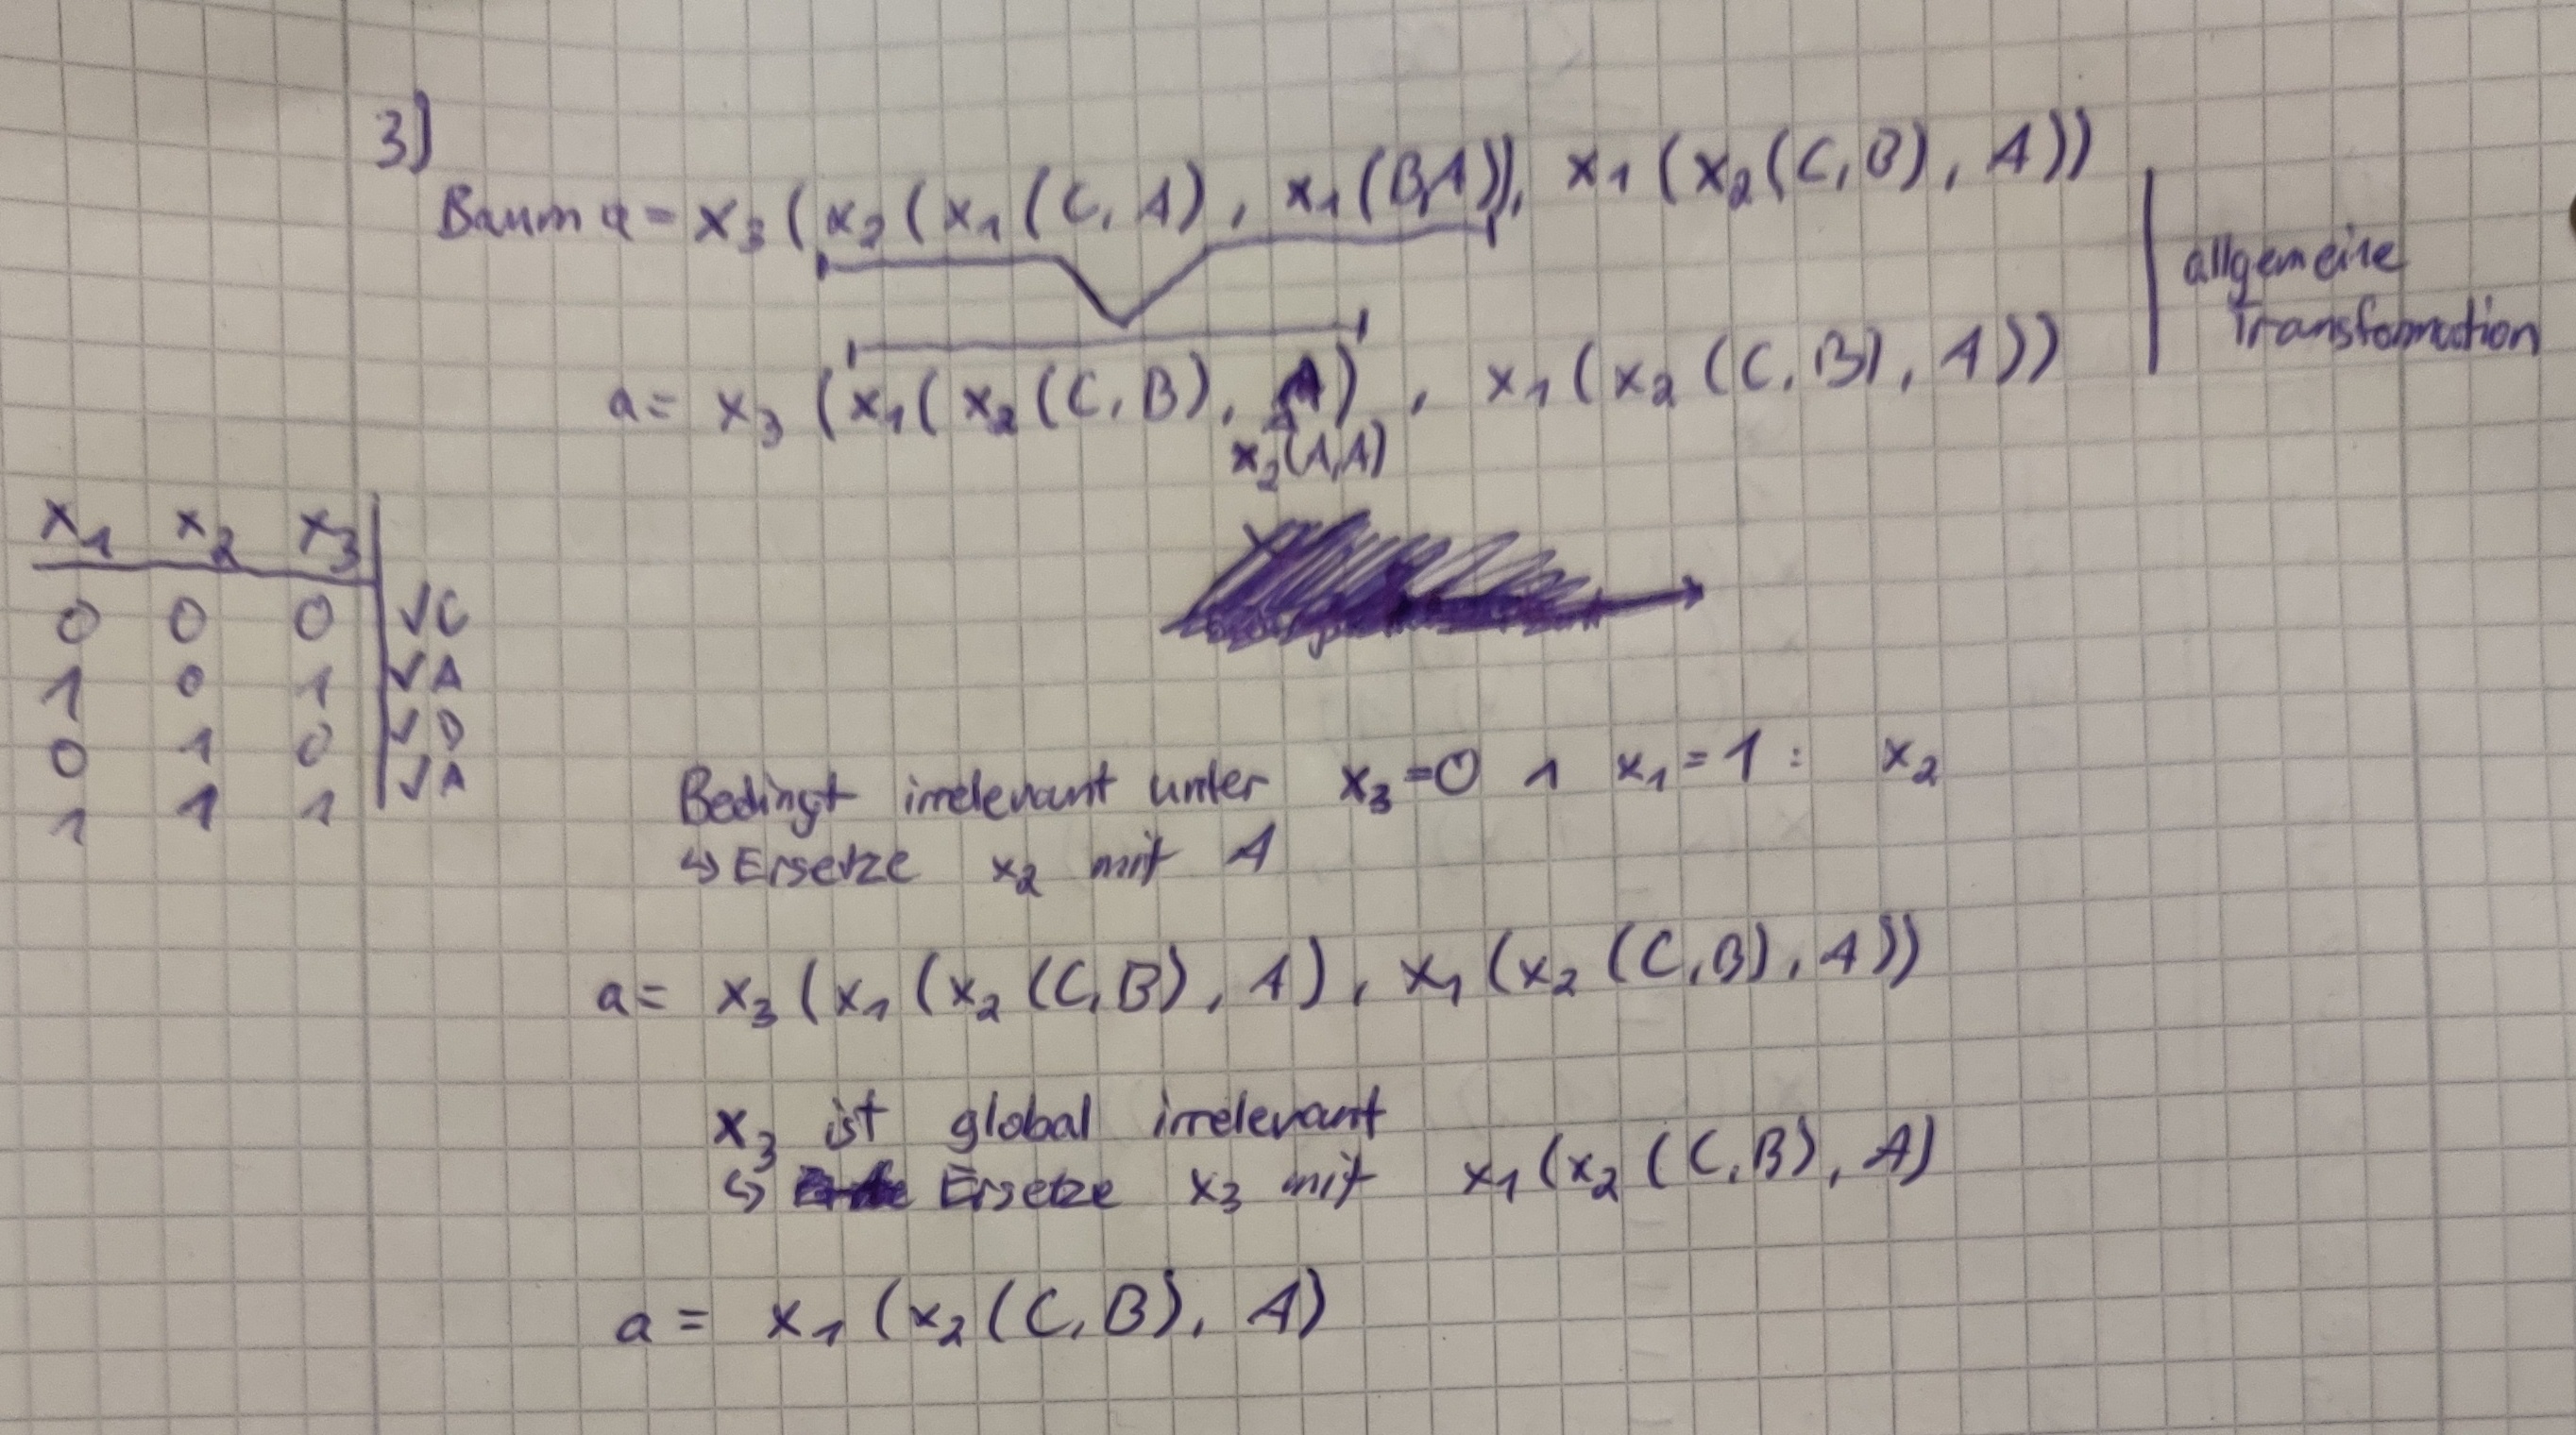 3)
Baum a = x₃ (x₂ (x₁ (C, A), x₁ (B,A)), x₁ (x₂ (C, B), A))
allgemeine
Transformation
a = x₃ (x₁ (x₂ (C, B), A), x₁ (x₂ (C, B), A))
x₂(A,A)
x₁ x₂ x₃
0 0 0 √C
1 0 1 √A
0 1 0 √B
1 1 1 √A
Bedingt irrelevant unter x₃=0 ∧ x₁=1 : x₂
↳ Ersetze x₂ mit A
a = x₃ (x₁ (x₂ (C, B), A), x₁ (x₂ (C, B), A))
x₃ ist global irrelevant
↳ Ersetze x₃ mit x₁ (x₂ (C, B), A)
a = x₁ (x₂ (C, B), A)